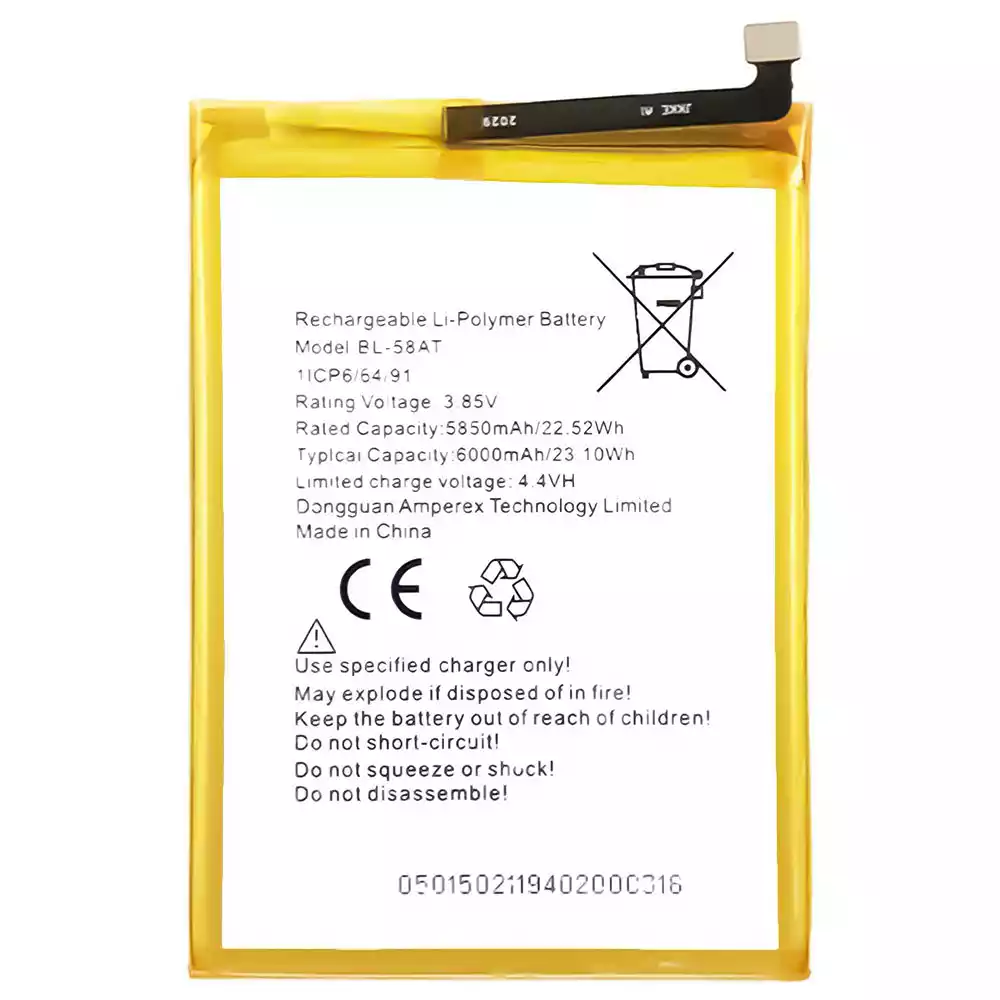 2029 JKKE
Rechargeable Li-Polymer Battery
Model BL-58AT
1ICP6/64/91
Rating Voltage 3.85V
Rated Capacity:5850mAh/22.52Wh
Typical Capacity:6000mAh/23.10Wh
Limited charge voltage: 4.4VH
Dongguan Amperex Technology Limited
Made in China
CE
Use specified charger only!
May explode if disposed of in fire!
Keep the battery out of reach of children!
Do not short-circuit!
Do not squeeze or shock!
Do not disassemble!
0501502119402000318